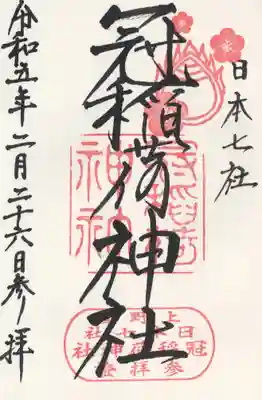 日本七社
冠稲荷神社
令和五年二月二十六日参拝
上野
日本七社
冠稲荷神社
参拝證